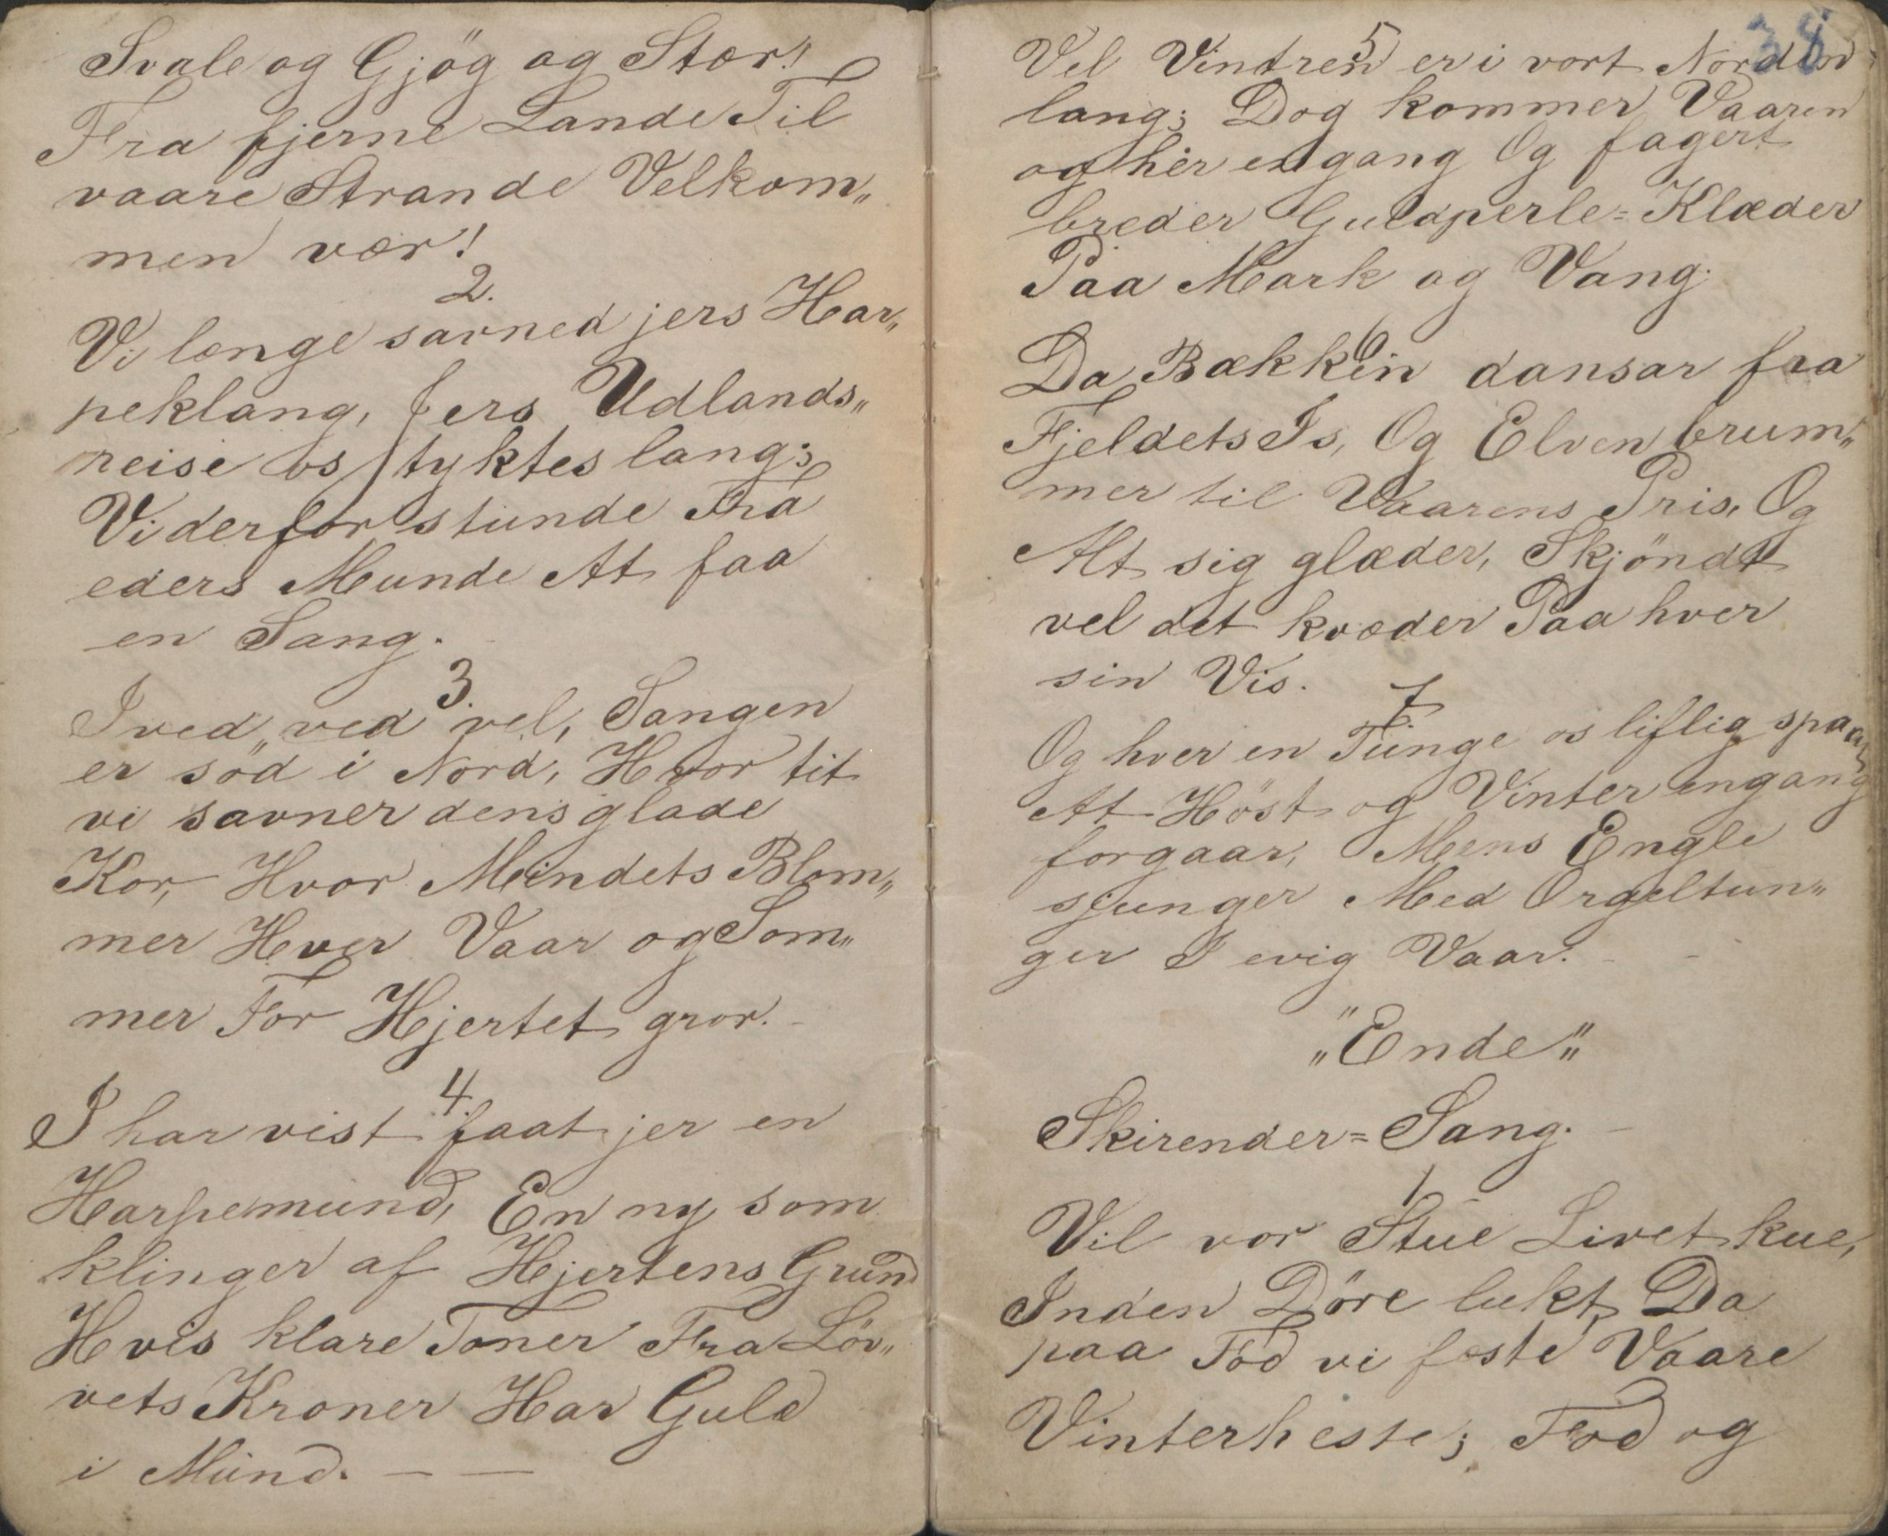 Svale og Gjög og Stær!
Fra fjerne Lande Til
vaare Strande Velkom„
men vær!
2.
Vi længe savned jers Har„
peklang, Jers Udlands„
reise os tyktes lang;
Vi derfor stunde Fra
eders Munde At faa
en Sang.
3.
I ved, ved vel, Sangen
er söd i Nord, Hvor tit
vi savner dens glade
Kor, Hvor Mindets Blom„
mer Hver Vaar og Som„
mer For Hjertet gror.
4.
I har vist faat jer en
Harpemund, En ny som
klinger af Hjertens Grund
Hvis klare Toner Fra Löv„
vets Kroner Har Guld
i Mund. — —
38
5
Vel Vintren er i vort Norden
lang; Dog kommer Vaaren
og her engang Og fagert
breder Guldperle=Klæder
Paa Mark og Vang.
6
Da Bækken dansar fra
Fjeldets Is, Og Elven brum„
mer til Vaarens Pris, Og
Alt sig glæder, Skjöndt
vel det kvæder Paa hver
sin Vis.
7.
Og hver en Tunge os liflig spaar
At Höst og Vinter engang
forgaar, Mens Engle
sjunger Med Orgeltun„
ger I evig Vaar.
„Ende„
Skirender=Sang. —
1
Vil vor Stue Livet kue,
Inden Döre lukt, Da
paa Fod vi feste Vaare
Vinterheste; Fod og